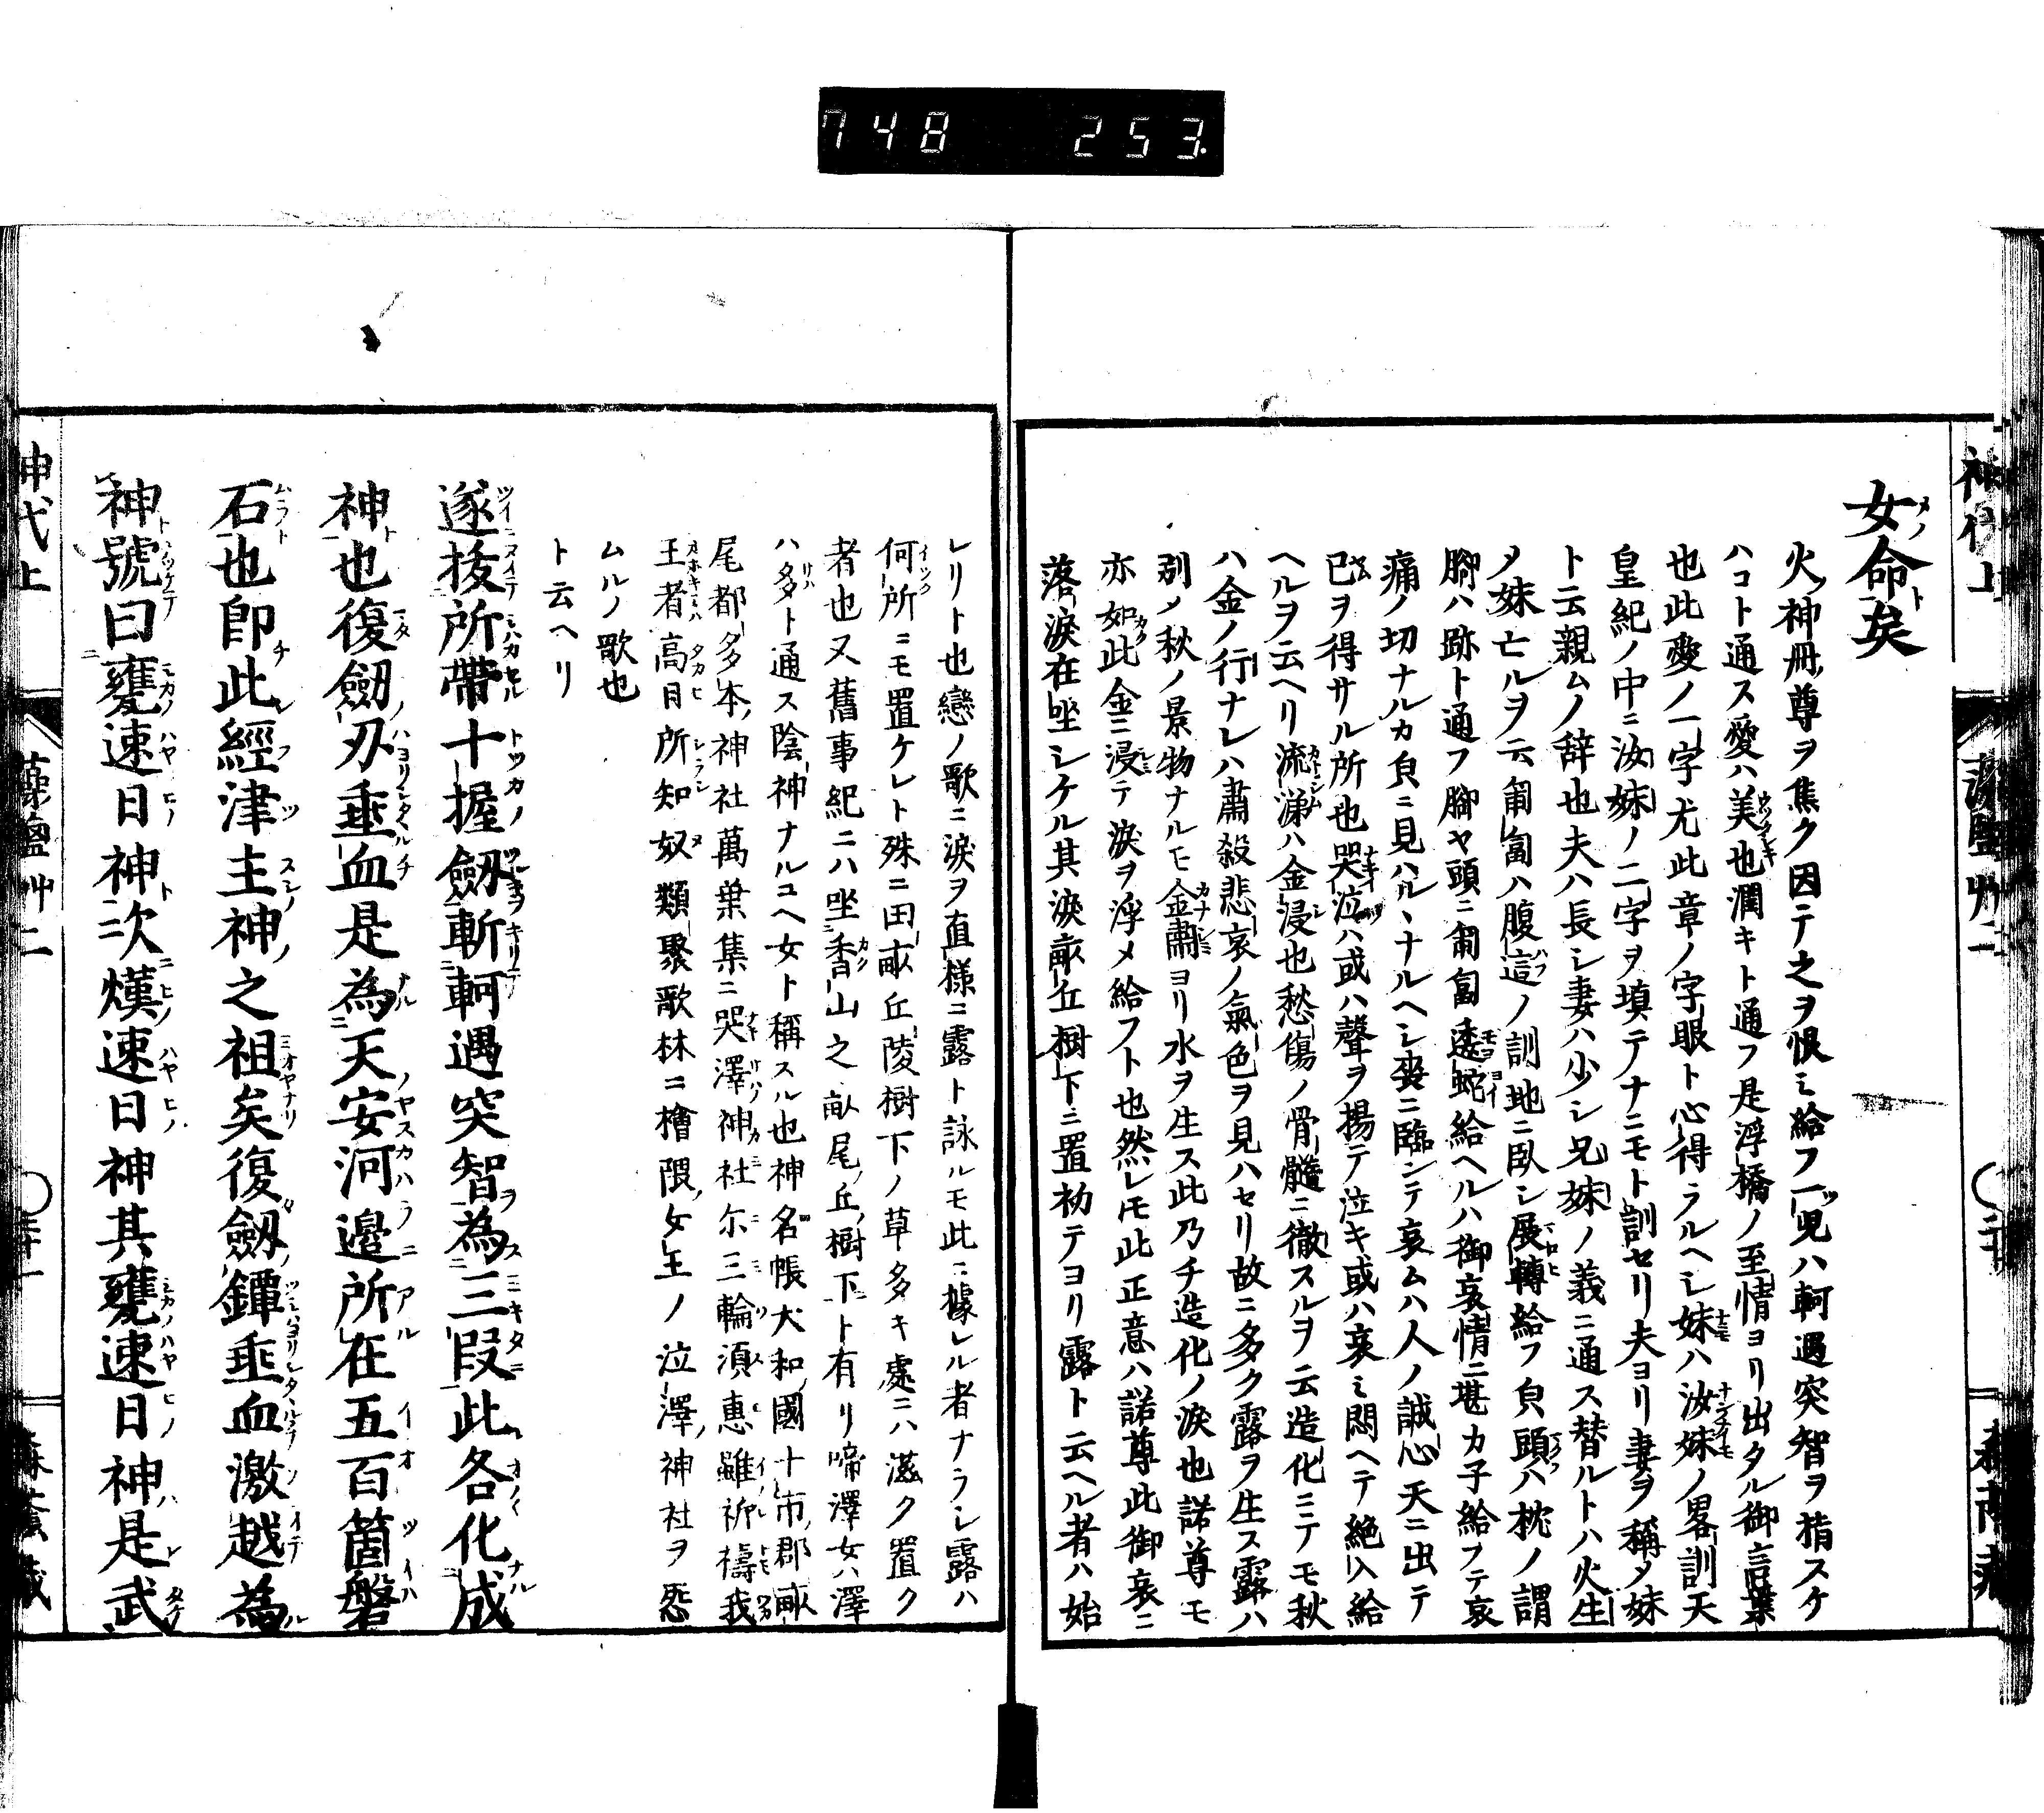 748 253.
女命矣
火ノ神冊尊ヲ焦ク因テ之ヲ恨ミ給フ一児ハ軻遇突智ヲ指スケ
ハコト通ス愛ハ美也潤キト通フ是浮橋ノ至情ヨリ出タル御言葉
也此愛ノ一字尤此章ノ字眼ト心得ラルヘシ妹ハ汝妹ノ畧訓天
皇紀ノ中ニ汝妹ノ二字ヲ填テナニモト訓セリ夫ヨリ妻ヲ稱メ妹
ト云親ムノ辞也夫ハ長シ妻ハ少シ兄妹ノ義ニ通ス替ルトハ火生
メ妹亡ルヲ云匍匐ハ腹這ノ訓地ニ臥シ展轉給フ㒵頭ハ枕ノ謂
脚ハ跡ト通フ脚ヤ頭ニ匍匐逶蛇給ヘルハ御哀情ニ堪カ子給フテ哀
痛ノ切ナルカ㒵ニ見ハルヽナルヘシ喪ニ臨ンテ哀ムハ人ノ誠心天ニ出テ
已ヲ得サル所也哭泣ハ或ハ聲ヲ揚テ泣キ或ハ哀ミ悶ヘテ絶入給
ヘルヲ云ヘリ流涕ハ金浸也愁傷ノ骨髓ニ徹スルヲ云造化ニテモ秋
ハ金ノ行ナレハ肅殺悲哀ノ氣色ヲ見ハセリ故ニ多ク露ヲ生ス露ハ
別メ秋ノ景物ナルモ金肅ヨリ水ヲ生ス此乃チ造化ノ淚也諾尊モ
亦如此金ニ浸テ淚ヲ浮メ給フト也然レモ此正意ハ諾尊此御哀ニ
落淚在坐シケル其淚畝丘樹下ニ置初テヨリ露ト云ヘル者ハ始
レリト也戀ノ歌ニ淚ヲ直様ニ露ト詠ルモ此ニ據レル者ナラシ露ハ
何所ニモ置ケレト殊ニ田畝丘陵樹下ノ草多キ處ニハ滋ク置ク
者也又舊事紀ニハ坐香山之畝尾丘樹下ト有リ啼澤女ハ澤
ハ多ト通ス陰神ナルユヘ女ト稱スル也神名帳大和國十市郡畝
尾都多本神社萬葉集ニ哭澤神社尓三輪須惠雖祈禱我
王者高日所知奴類聚歌林ニ檜隈女王ノ泣澤神社ヲ怨
ムルノ歌也
ト云ヘリ
遂拔所帶十握劔斬軻遇突智為三段此各化成
神也復劔刃垂血是為天安河邊所在五百箇磐
石也即此經津主神之祖矣復劔鐔垂血激越為
神號曰甕速日神次熯速日神其甕速日神是武
神代上 藻鹽艸二